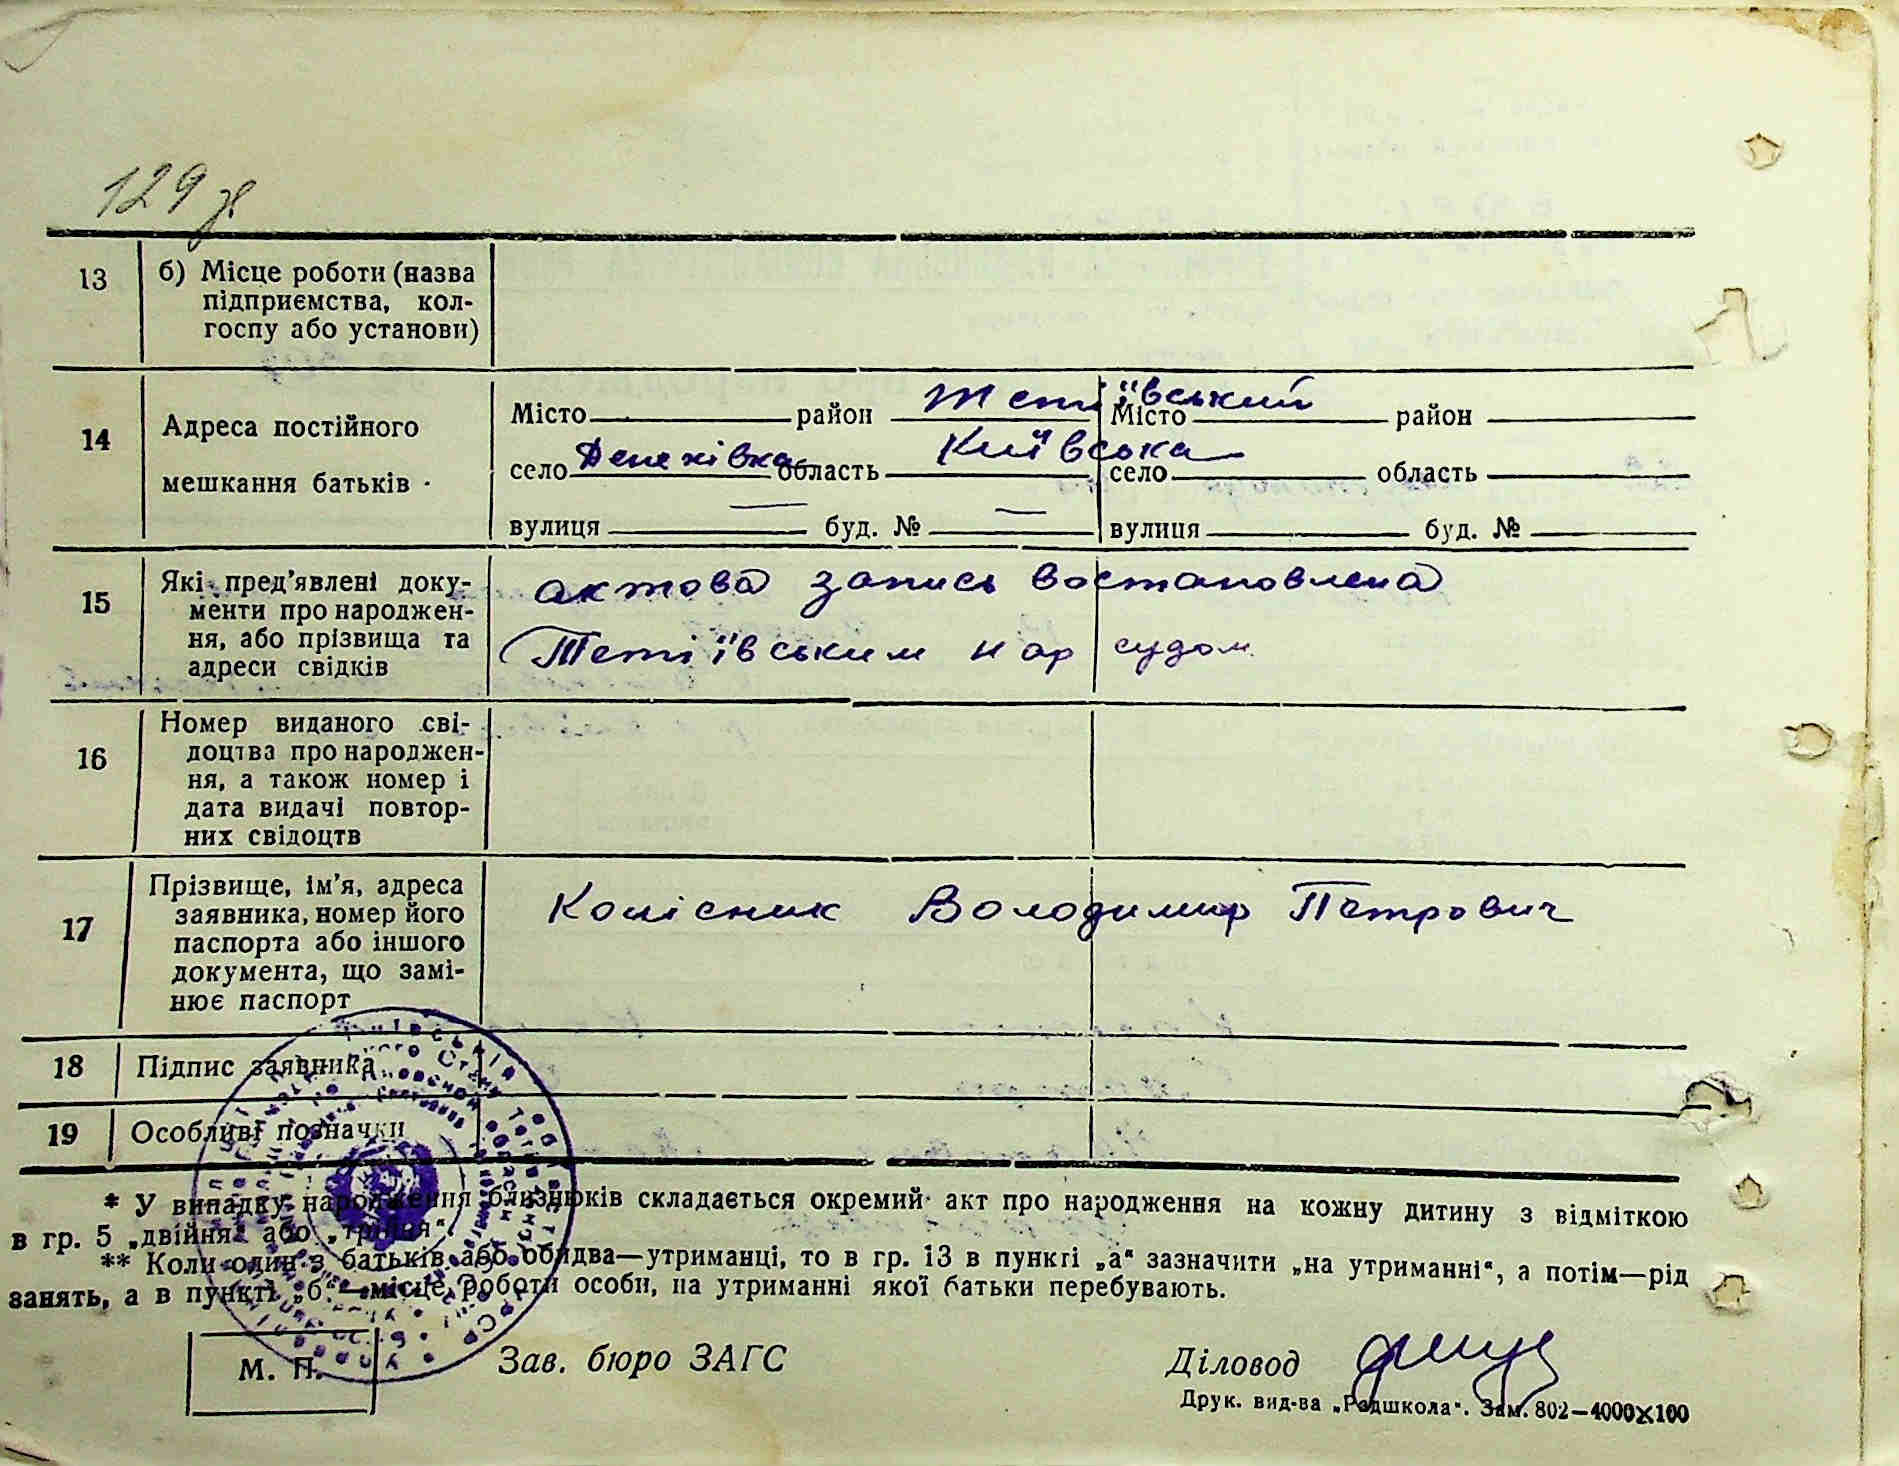 129 зв
13 б) Місце роботи (назва
підприємства, кол-
госпу або установи)
14 Адреса постійного
мешкання батьків
Місто район Тетіївський Місто район
село Денехівка область Київська село область
вулиця — буд. № — вулиця буд. №
15 Які пред'явлені доку-
менти про народжен-
ня, або прізвища та
адреси свідків
актова запись востановлена
Тетіївським нар судом.
16 Номер виданого сві-
доцтва про народжен-
ня, а також номер і
дата видачі повтор-
них свідоцтв
17 Прізвище, ім'я, адреса
заявника, номер його
паспорта або іншого
документа, що замі-
нює паспорт
Колісник Володимир Петрович
18 Підпис заявника
19 Особливі позначки
* У випадку народження близнюків складається окремий акт про народження на кожну дитину з відміткою
в гр. 5 „двійня" або „трійня".
** Коли один з батьків або обидва—утриманці, то в гр. 13 в пункті „а" зазначити „на утриманні", а потім—рід
занять, а в пункті „б"—місце роботи особи, на утриманні якої батьки перебувають.
М. П. Зав. бюро ЗАГС Діловод
Друк. вид-ва „Радшкола". Зам. 802—4000×100